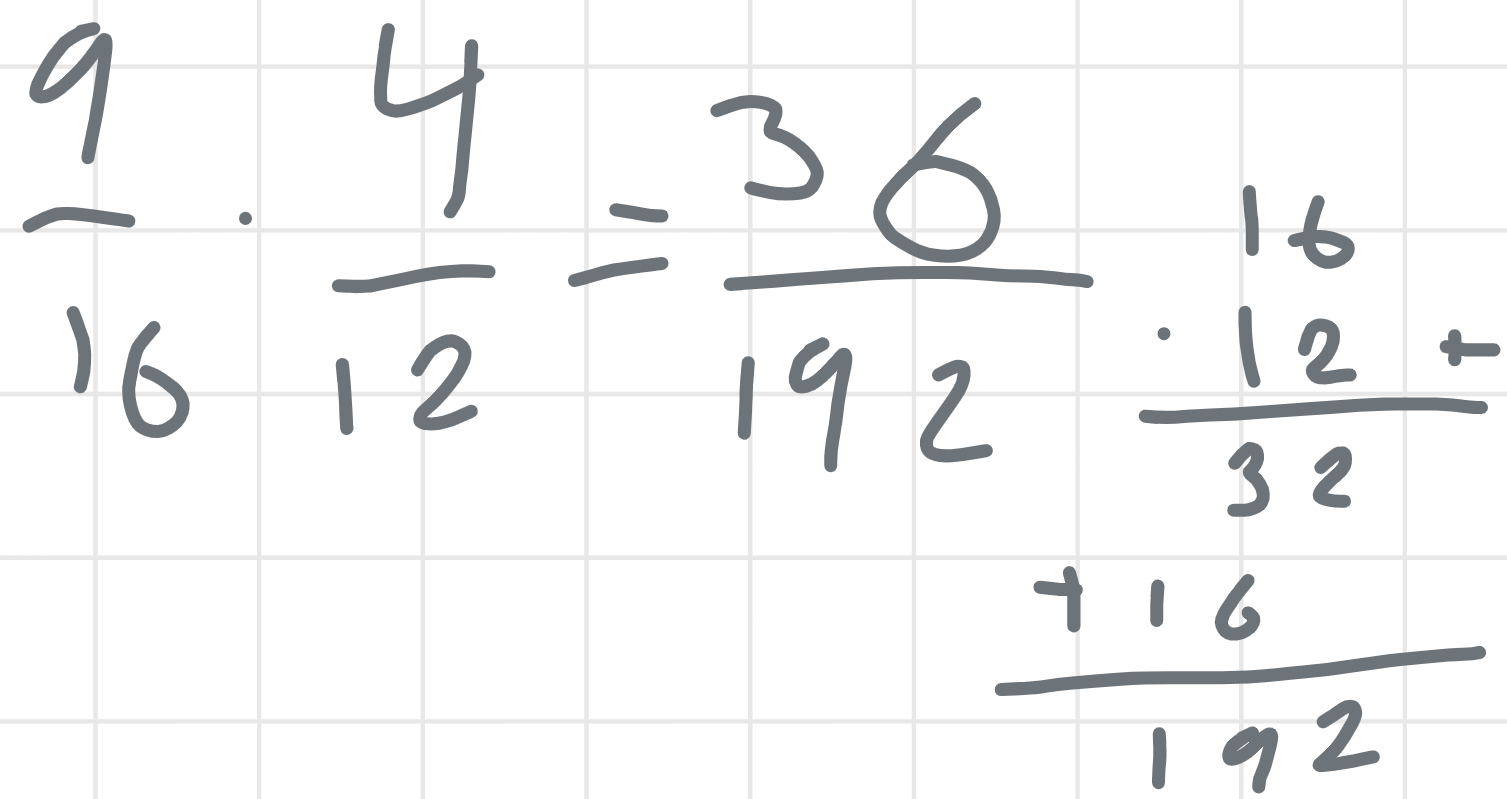 9/16 · 4/12 = 36/192
16
· 12 +
32
+ 16
192